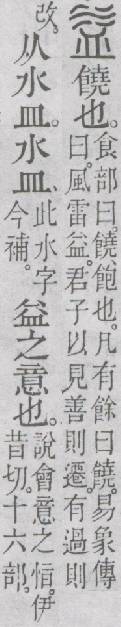 益饒也。食部曰。饒、飽也。凡有餘曰饒。易象傳曰。風雷益。君子以見善則遷。有過則
改。从水皿。水皿、此水字今補。益之意也。說會意之恉。伊昔切。十六部。